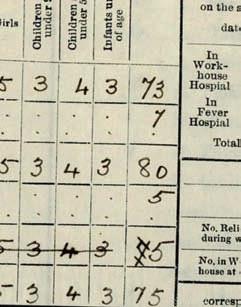 Girls
Children
under 9
Children
under 5
Infants un
of age
on the s
dat
5 3 4 3 73
In
Work-
house
Hospial
. . . . 7
In
Fever
Hospial
Total
5 3 4 3 80
. . . . 5
5 3 4 3 5
No. Reli
during w
No. in W
house at
5 3 4 3 75
corresp